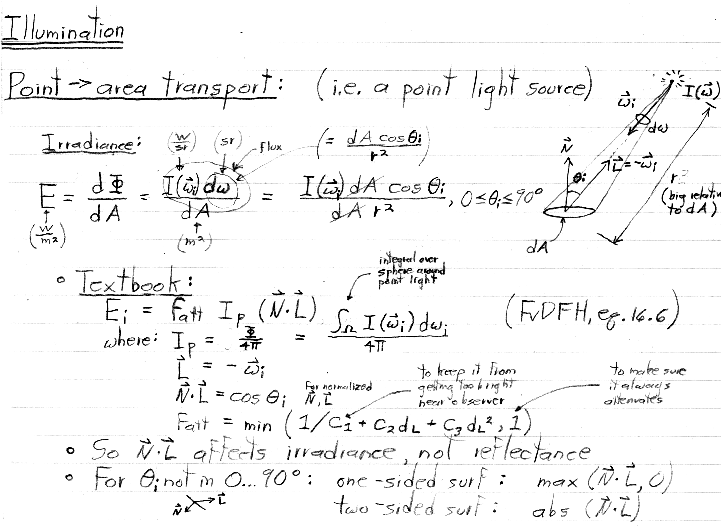 Illumination
Point → area transport: (i.e. a point light source)
Irradiance: (W/sr) (sr) flux (= dA cosθi / r²)
E = dΦ/dA = I(ω⃗i) dω / dA = I(ω⃗i) dA cosθi / dA r², 0≤θi≤90°
(W/m²) (m²)
I(ω⃗)
ω⃗i
dω
N⃗
θi
L⃗=-ω⃗i
r
(big relative
to dA)
dA
• Textbook:
integral over
sphere around
point light
Ei = fatt Ip (N⃗·L⃗) (FvDFH, eq. 16.6)
where: Ip = Φ/4π = ∫Ω I(ω⃗i) dωi / 4π
L⃗ = -ω⃗i
N⃗·L⃗ = cosθi For normalized N⃗, L⃗
to keep it from
getting too bright
near observer
to make sure
it always
attenuates
Fatt = min (1/C1 + C2dL + C3dL², 1)
• So N⃗·L⃗ affects irradiance, not reflectance
• For θi not in 0...90°: one-sided surf: max (N⃗·L⃗, 0)
N⃗ L⃗ two-sided surf: abs (N⃗·L⃗)